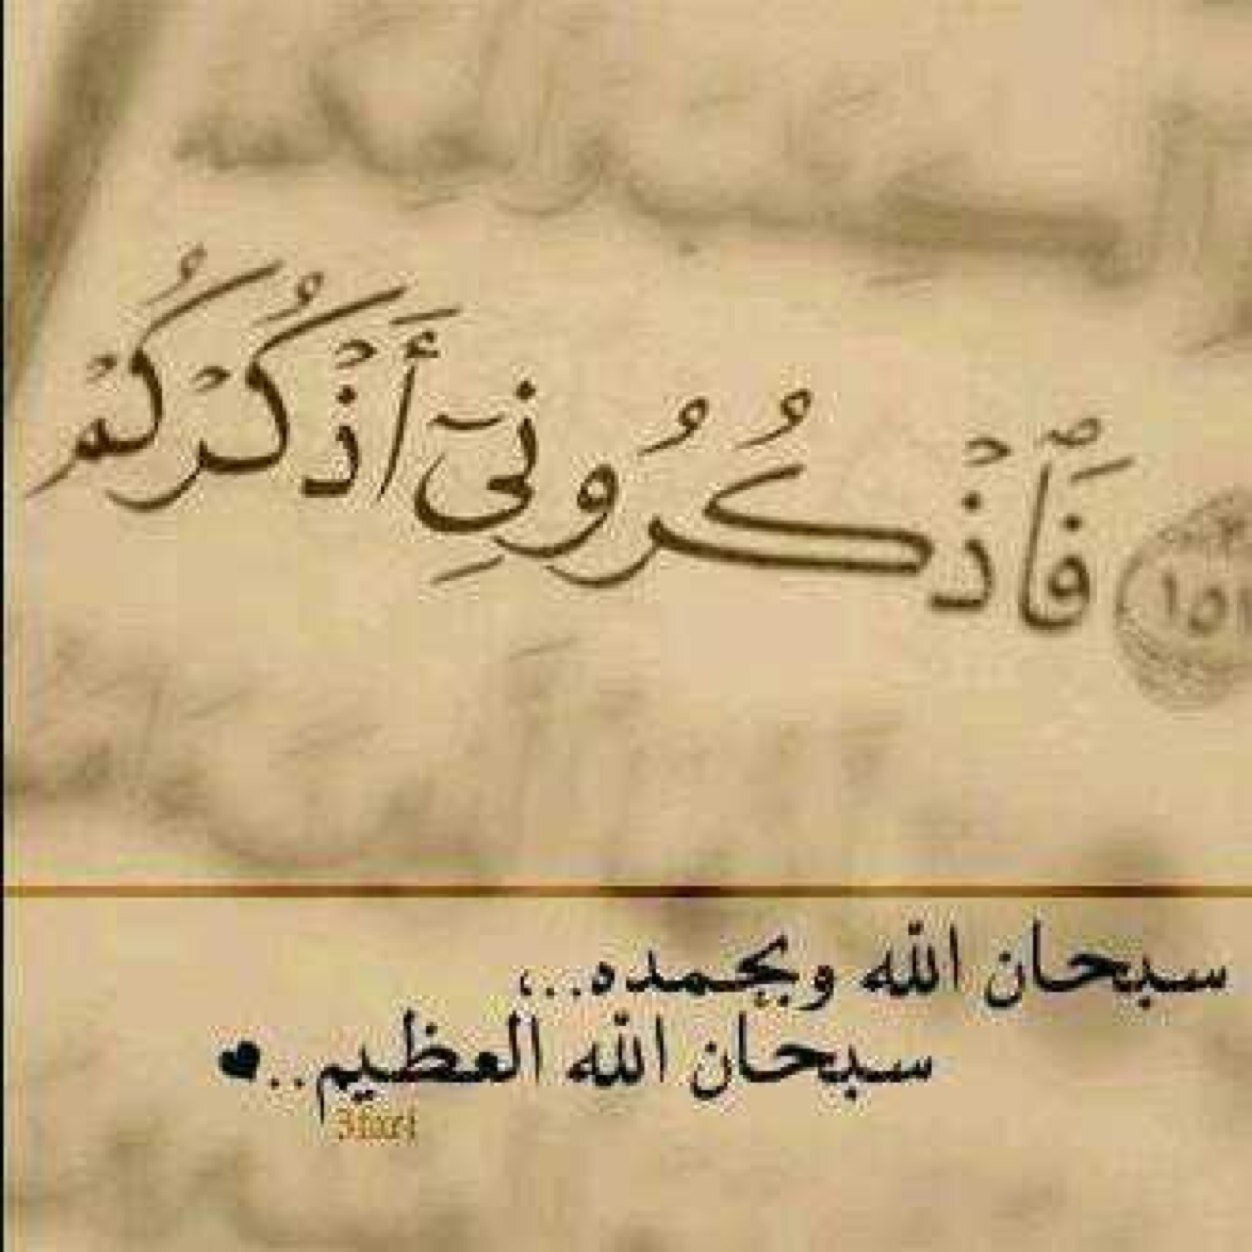 فَٱذۡكُرُونِيٓ أَذۡكُرۡكُمۡ
سبحان الله وبحمده...،
سبحان الله العظيم..♥